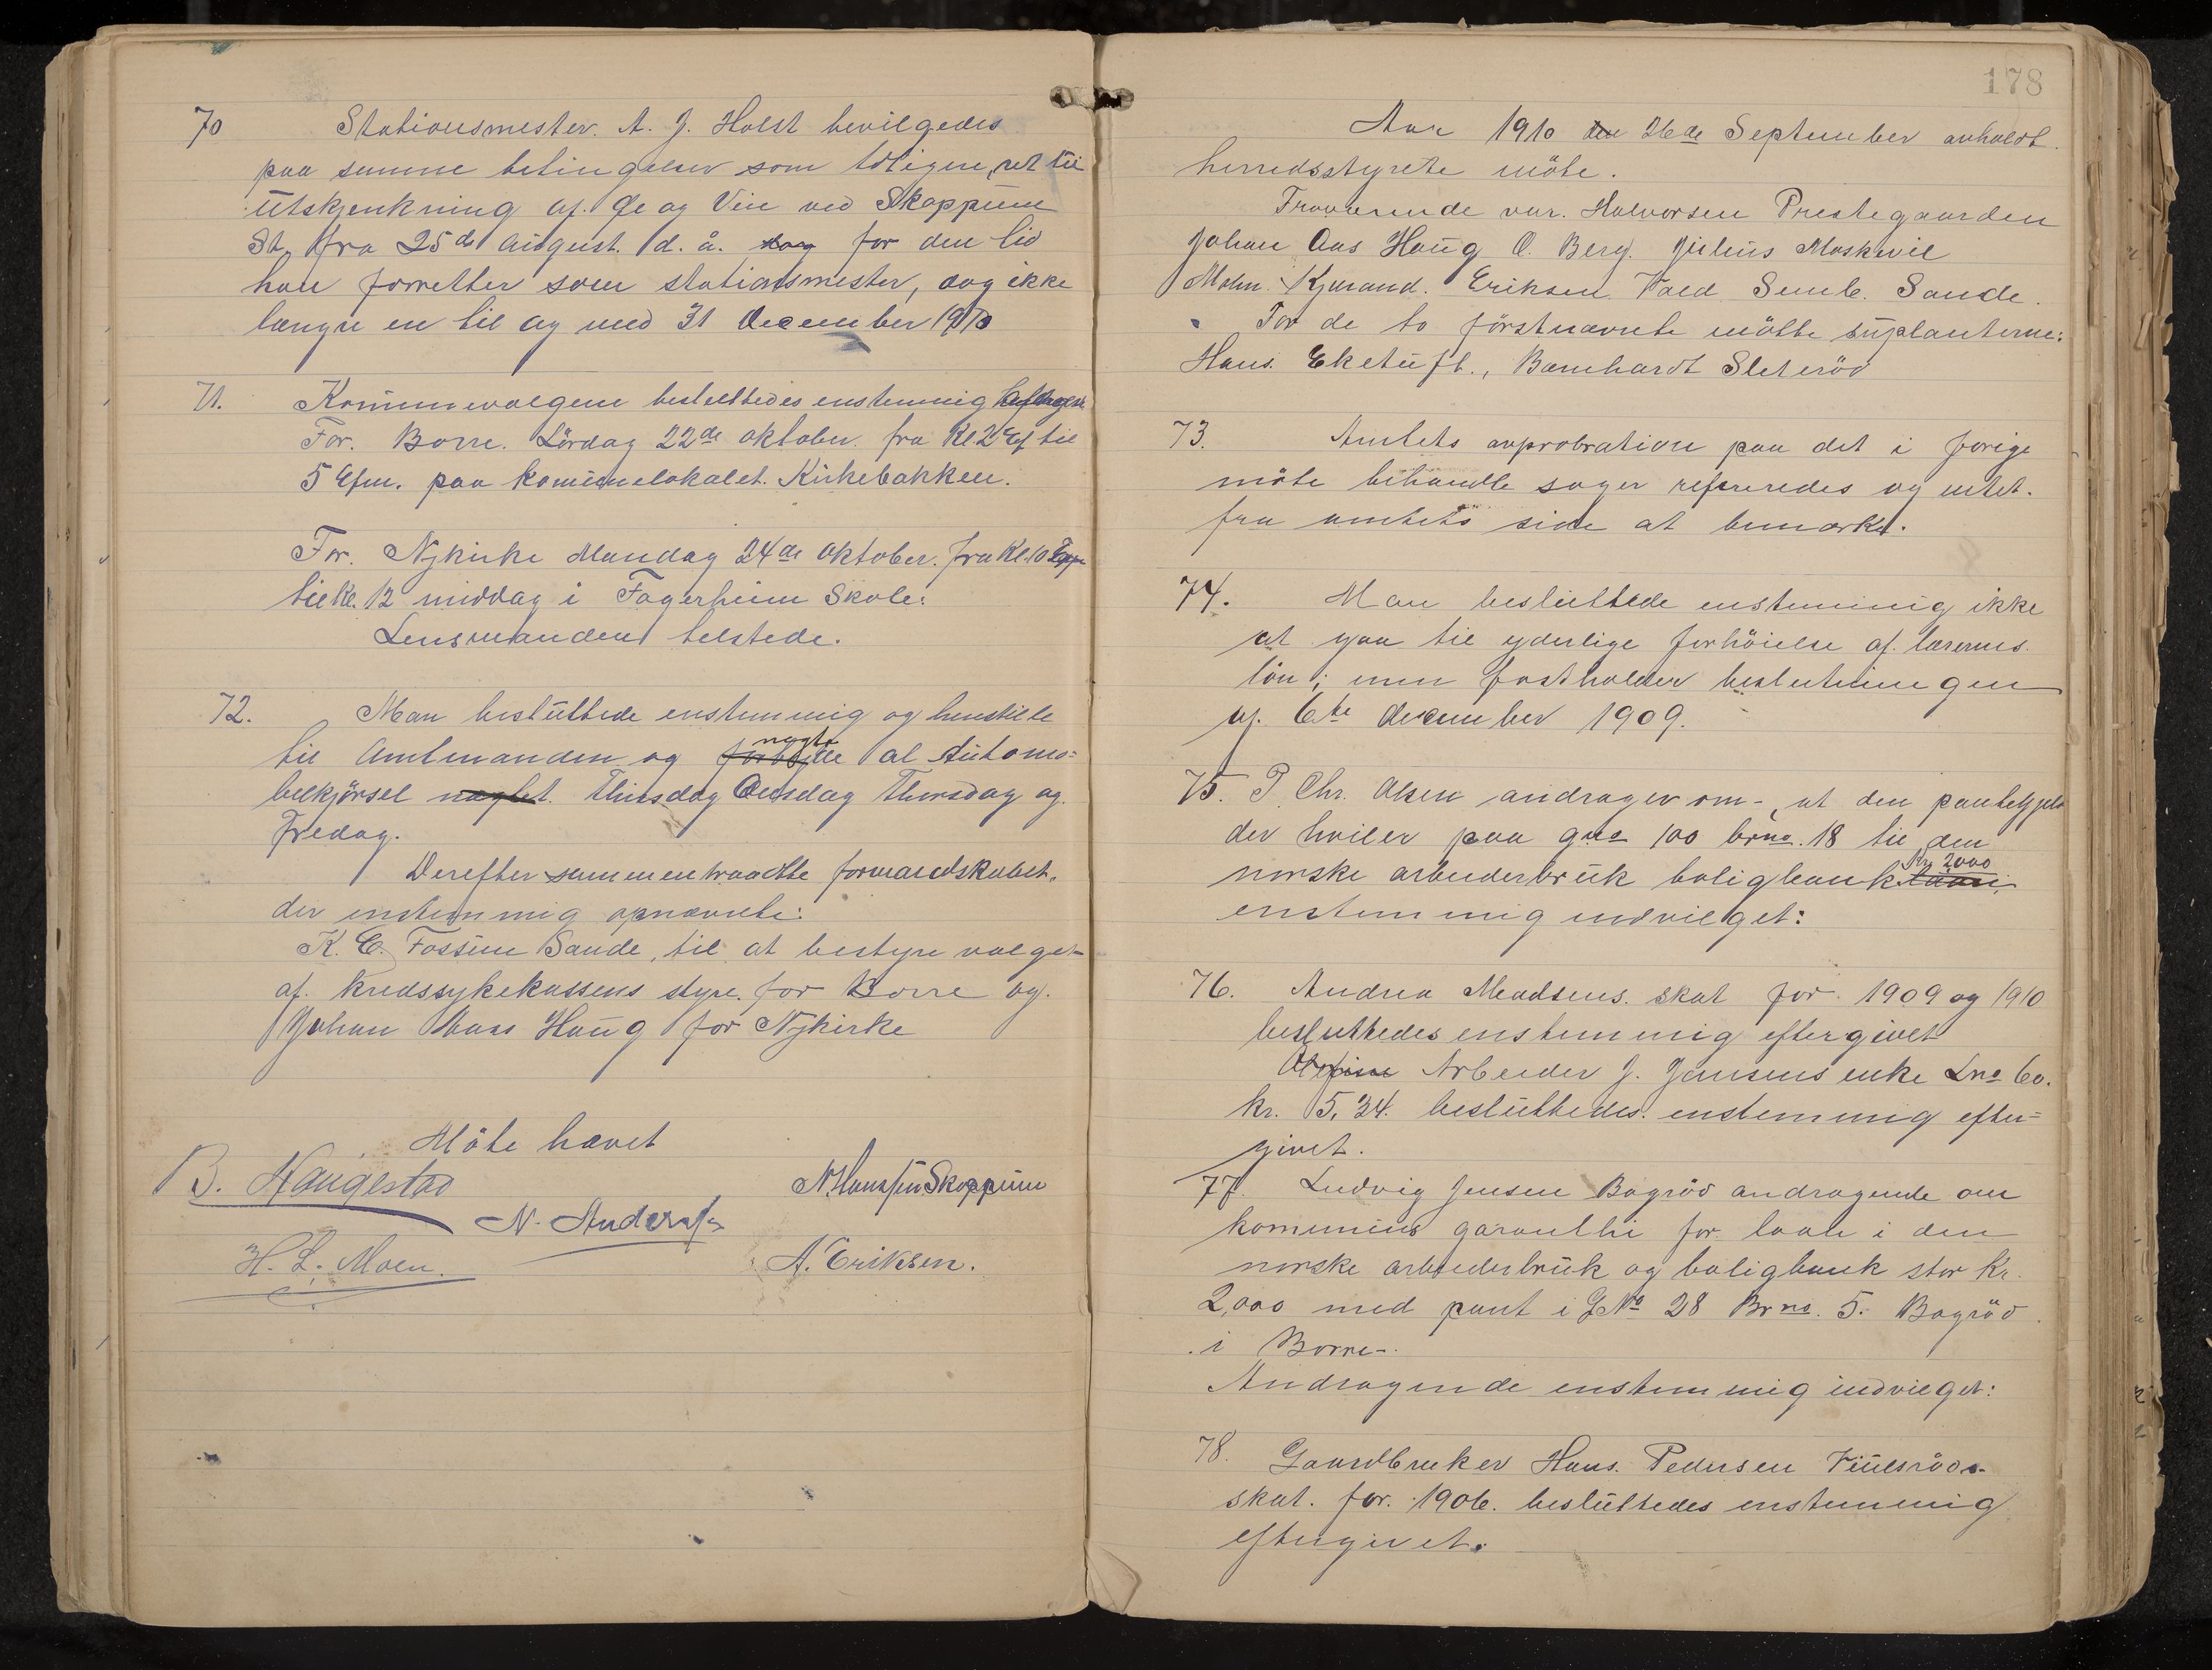 70 Stationsmester. A. J. Holst bevilgedes
paa samme betingelser som tidligere, ret til
Utskjenkning af. Øl og Vin ved Skoppum
St. fra 25de August. d. å. dog for den tid
han forretter som stationsmester, dog ikke
længre en til og med 31 December 1910
71. Kommunevalgene besluttedes enstemmig
For. Borre. Lördag 22de oktober. fra Kl. 2 Ef til
5 Efm. paa komunelokalet. Kirkebakken.
For. Nykirke Mandag 24de oktober. fra Kl. 10
til Kl. 12 middag i Fagerheim Skole.
Lensmanden tilstede.
72. Man besluttede enstemmig og henstille
til Amtmanden og forbyde negte al Automo=
bilkjörsel negtet. Thirsdag Onsdag Thorsdag og
Fredag.
Derefter sammentraadte formandskabet.
der enstemmig opnævnte:
K. E. Fossum Sande, til at bestyre valget
af. kredssykekassens styre. for Borre og.
Johan Aaas Haug for Nykirke
Möte hævet
B. Haugestad
N. Hansen Skoppum
N. Andersen
H. L. Moen.
A. Eriksen.
178
Aar 1910 den 26de September avholdt.
herredsstyrete möte.
Fraværende var. Halvorsen Prestegaarden
Johan Aas Haug O. Berg. Julius Moskvil
Molin. Kjærand. Eriksen Vold Semb. Sande.
For de to förstnævnte mötte suplanterne:
Hans. Eketuft., Barnhardt Sleteröd
73. Amtets approbration paa det i forige
möte behandle sager refereredes og intet.
fra amtets side at bemærke.
74. Man besluttede enstemmig ikke
at gaa til yderlige forhöielse af. lærernes.
lön; men fastholder beslutningen
af. 6te december 1909.
75. P. Chr. Olsen andrager om-, at den pantegjeld
der hviler paa gno 100 brno. 18 til den
norske arbeiderbruk boligbank Kr 2000
enstemmig indvilget:
76. Andrea Madsens. skat for. 1909 og 1910
besluttedes enstemmig eftergivet
Arbeider J. Jansens enke Lno 60.
kr. 5,34. besluttedes. enstemmig efter=
givet.
77. Ludvig Jensen Bagröd andragende om
komunens garanthi for laan i den
norske arbeiderbruk og boligbank stor Kr.
2,000 med pant i GNo 28 Brno. 5. Bagröd.
i Borre-.
Andragende enstemmig indvilget:
78. Gaardbruker Hans. Pedersen
skat. for. 1906. besluttedes enstemmig
eftergivet.